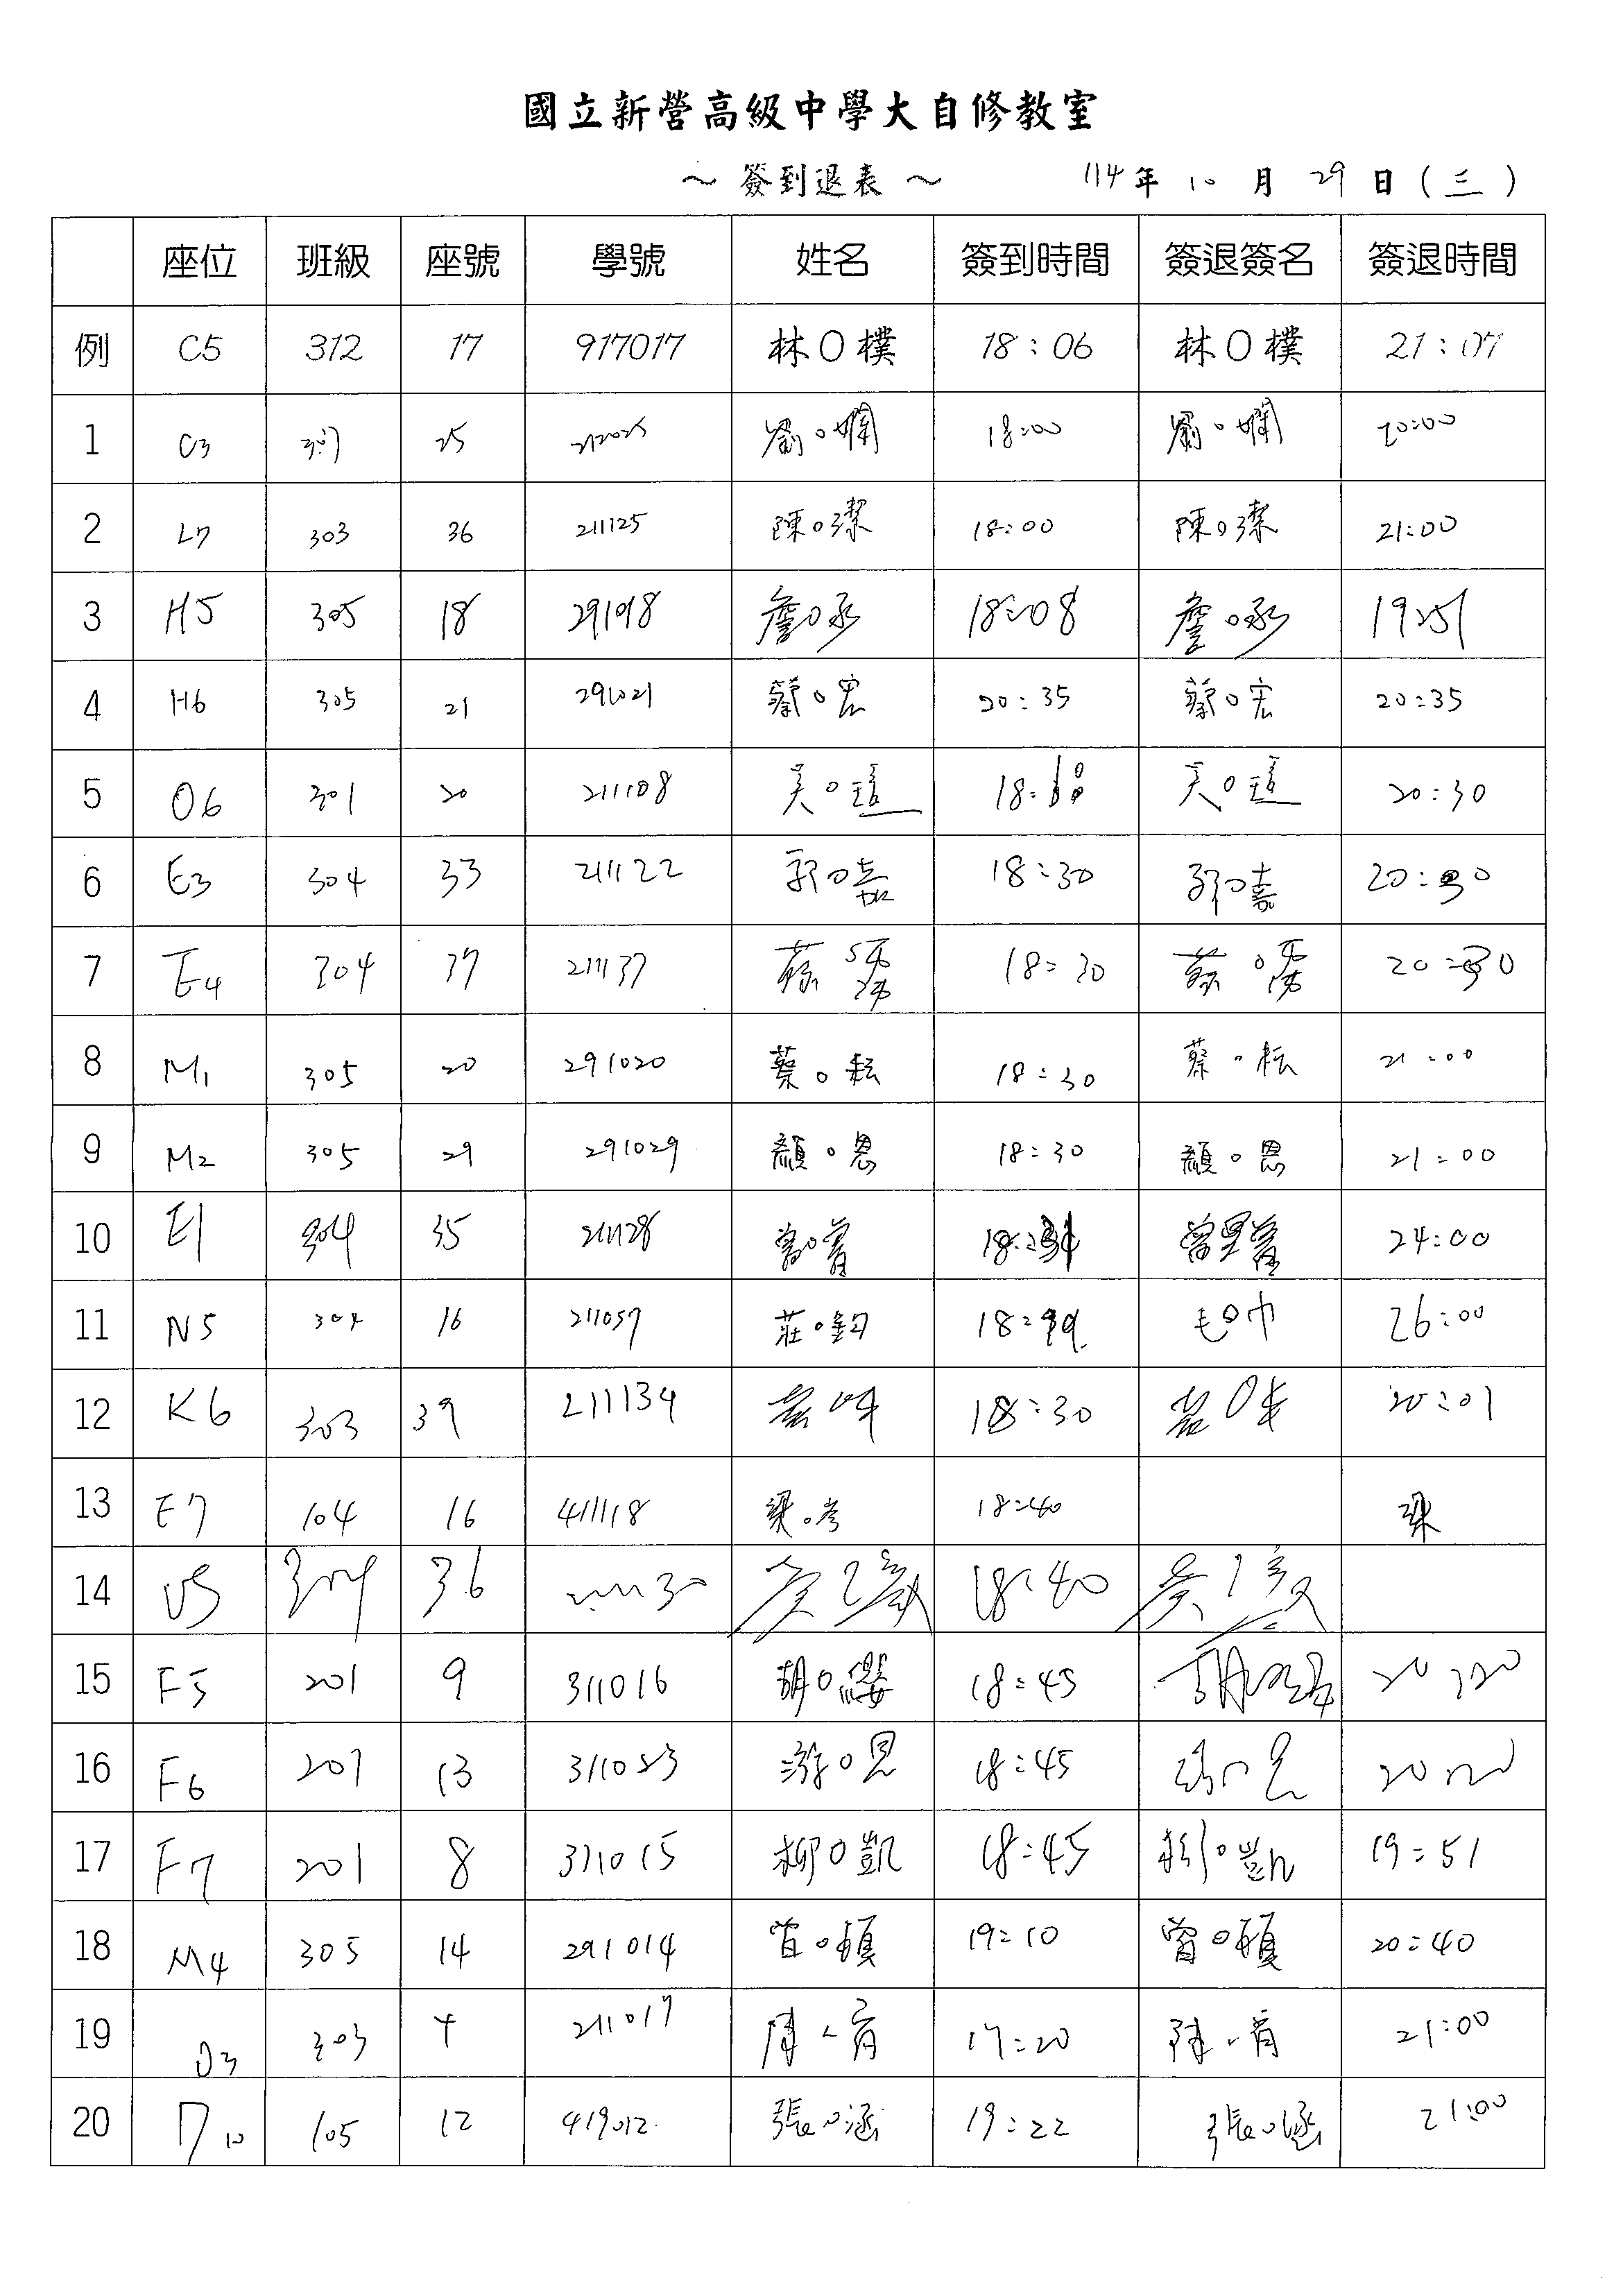 國立新營高級中學大自修教室
～ 簽到退表 ～ 114年 10 月 29 日 (三)
座位 班級 座號 學號 姓名 簽到時間 簽退簽名 簽退時間
例 C5 312 17 917017 林O樸 18:06 林O樸 21:07
1 C3 25 212025 劉O嫻 18:00 劉O嫻 20:00
2 L7 303 36 211125 陳O潔 18:00 陳O潔 21:00
3 H5 305 18 詹O承 18:08 詹O承 19:51
4 H6 305 21 291021 蔡O宏 20:35 蔡O宏 20:35
5 O6 301 20 211108 吳O瑄 18: 吳O瑄 20:30
6 E3 304 33 211122 郭O嘉 18:30 郭O嘉 20:30
7 E4 304 37 211137 蔡 18:30 蔡 20:30
8 M1 305 20 291020 蔡O耘 18:30 蔡O耘 21:00
9 M2 305 29 291029 顏O恩 18:30 顏O恩 21:00
10 E1 304 35 211128 24:00
11 N5 304 16 211057 莊O鈞 毛O巾 26:00
12 K6 303 39 211134 18:30 20:01
13 E7 104 16 411118 梁O彥 18:40 梁
14 36 18:40
15 F5 201 9 311016 胡O纓 18:45 20:20
16 F6 201 13 311023 游O恩 18:45 20:20
17 F7 201 8 311015 柳O凱 18:45 柳O凱 19:51
18 M4 305 14 291014 曾O頤 19:10 曾O頤 20:40
19 D3 303 4 211017 陳O育 19:20 陳O育 21:00
20 105 12 419012 張O涵 19:22 張O涵 21:00